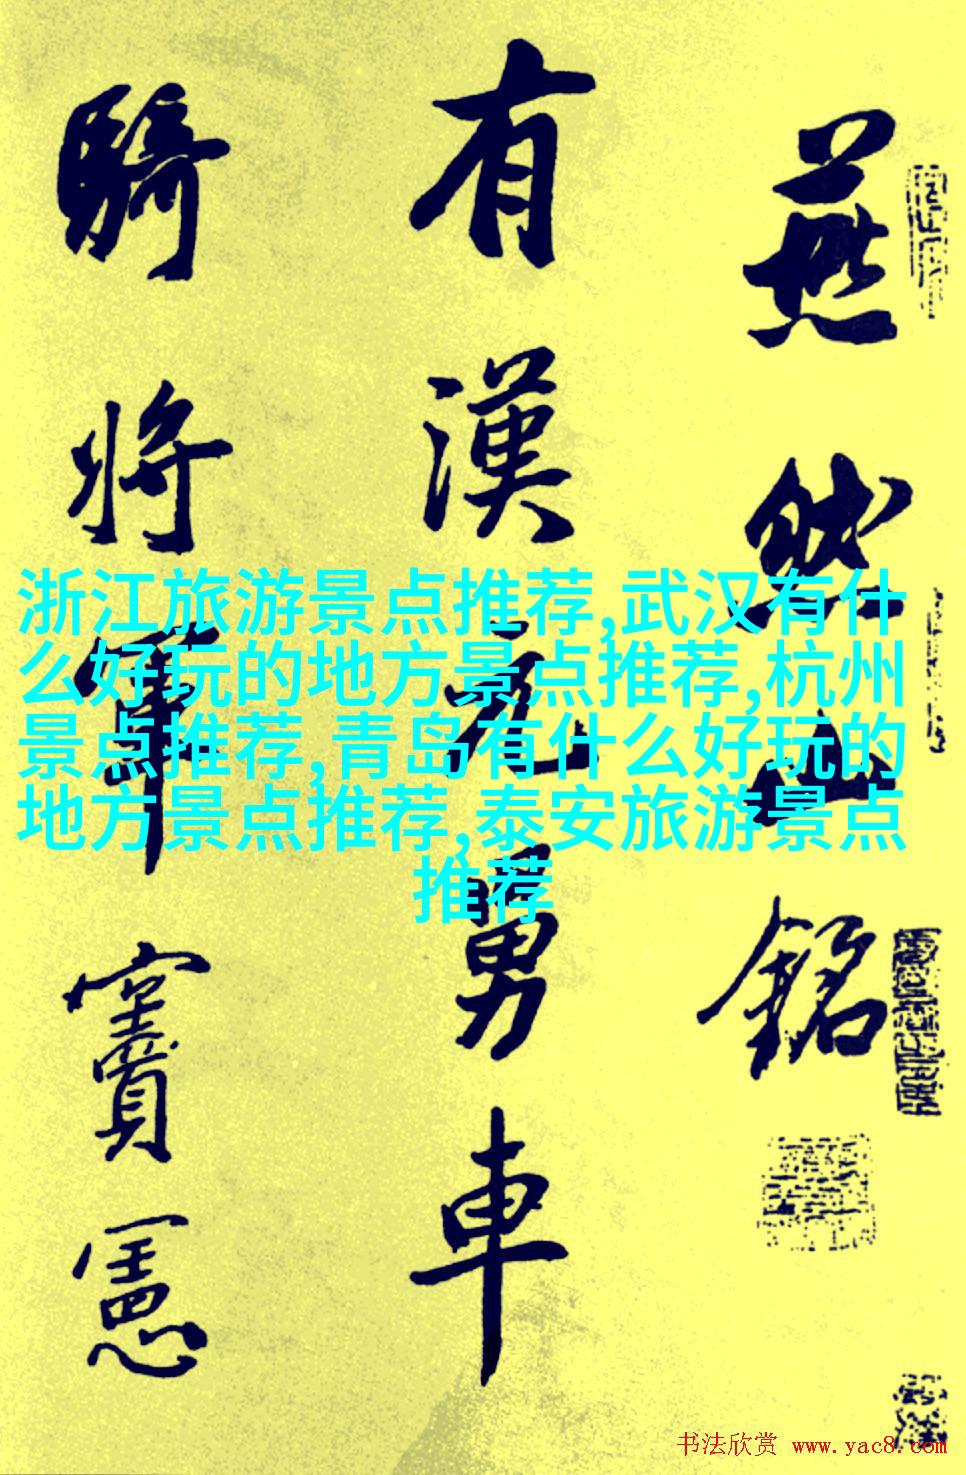 燕然山銘
有漢元舅車
騎將軍竇憲
浙江旅游景点推荐,武汉有什
么好玩的地方景点推荐,杭州
景点推荐,青岛有什么好玩的
地方景点推荐,泰安旅游景点
推荐
书法欣赏 www.yac8.com